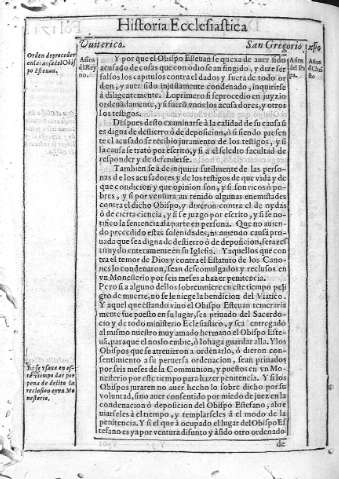 Historia Ecclesiastica
Vuiterico. San Gregorio
Orden de proceder
en la causa del Obispo
Esteuan.
Y por que el Obispo Esteuan se quexa de auer sido
acusado de cosas que con odio se an fingido, y dize ser
falsos los capitulos contra el dados y fuera de todo or
den, y auer sido injustamente condenado, inquirirse
á diligentemente. Lo primero si se procedio en juyzio
ordenadamente, y si fueró vnos los acusadores, y otros
los testigos.
Despues desto examinarse á la calidad de su causa si
es digna de destierro ò de deposicion, ò si siendo presen
te el acusado se recibio juramento de los testigos, y si
la causa se trató por escrito, y si a el se le dio facultad de
responder y de defenderse.
Tambien se à de inquirir sutilmente de las perso-
nas de los acusadores y de los testigos de que vida y de
que condicion y que opinion son, y si son ricos ò po-
bres, y si por ventura an tenido algunas enemistades
contra el dicho Obispo, y dixeron contra el de oydas
ò de cierta ciencia, y si se juzgo por escrito, y si se no-
tifico la sentencia a la parte en persona. Que no auien
do precedido estas solenidades, ni auiendo causa pro-
uada que sea digna de destierro ò de deposicion, sera
enteramente en su Iglesia. Y aquellos que con
tra el temor de Dios y contra el Estatuto de los Cano-
nes lo condenaron, sean descomulgados y reclusos en
vn Monesterio por seis meses a hazer penitencia.
Pero si a alguno dellos sobreuiniere en este tiempo peli
gro de muerte, no se le niegue la bendicion del Viatico.
Y aquel que estando viuo el Obispo Esteuan temeraria
mente fue puesto en su lugar, sea priuado del Sacerdo-
cio y de todo ministerio Ecclesiastico, y sea entregado
al mismo nuestro muy amado hermano el Obispo Este-
uan, el paraque no se lo embie, ò lo haga guardar alla. Y los
Obispos que se atreuieron a ordenarlo, ò dieron con-
sentimiento a su peruersa ordenacion, sean priuados
por seis meses de la Communion, y puestos en vn Mo-
nesterio por este tiempo para hazer penitencia. Y si los
Obispos juraren no auer hecho lo sobre dicho por su
voluntad, sino auer consentido por miedo de juez en la
condenacion ò deposicion del Obispo Estefano, abre
uiarseles á el tiempo, y templarseles á el modo de la
penitencia. Y si el que à ocupado el lugar del Obispo Es
tefano es ya por ventura difunto y à sido otro ordenado
Ya se vsaua en es-
te tiempo dar por
pena de delito la
reclusion en vn Mo-
nesterio.
de